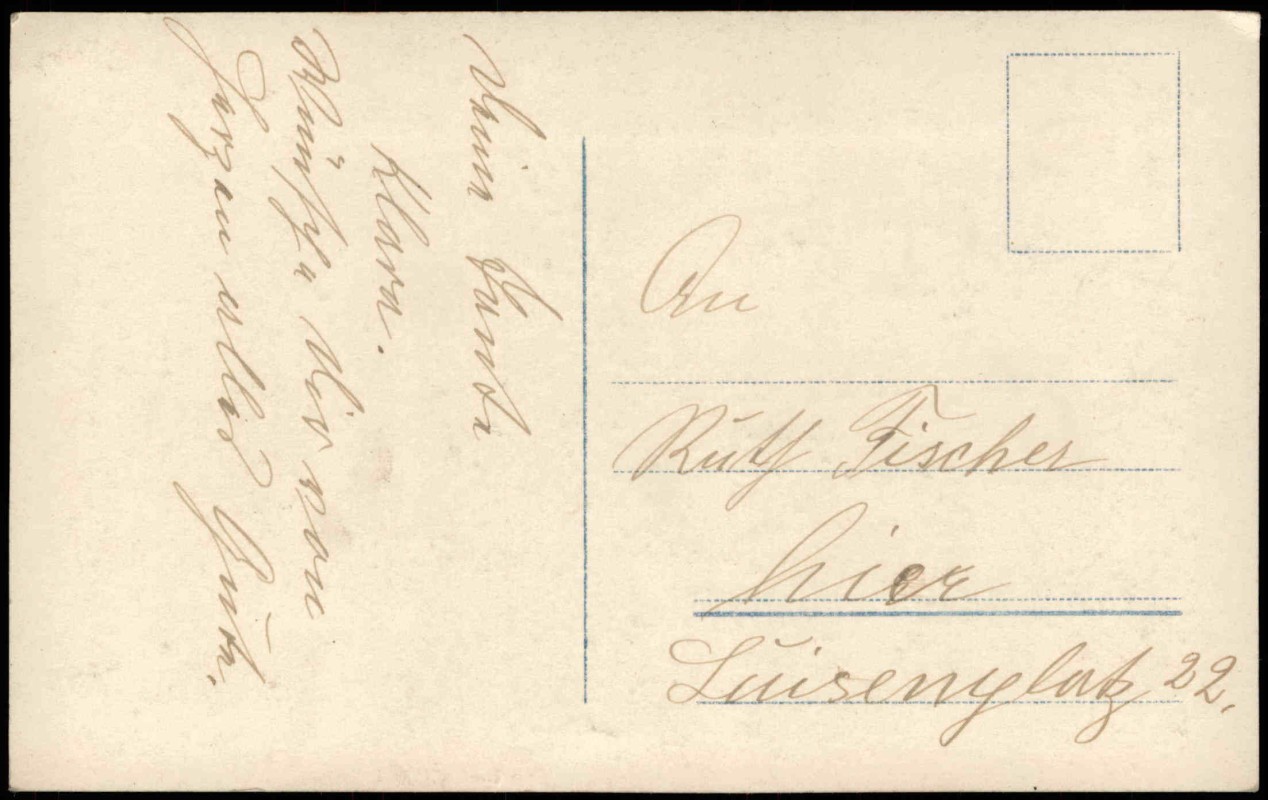 Deine Tante
Klara.
Wünsche Dir von
Herzen alles Gute.
An
Ruth Fischer
hier
Luisenplatz 22.